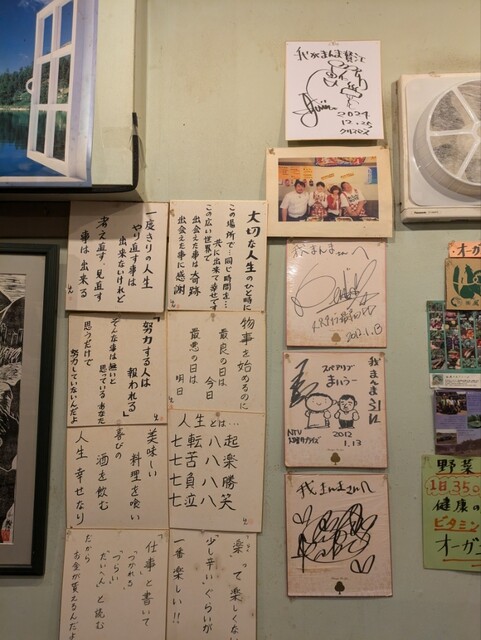 一度きりの人生
やり直す事は
出来ないけれど
考え直す、見直す
事は出来る
大切な人生のひと時に
この場所で…同じ時間を…
共に出来て幸せです
この広い世界で
出会えた事は奇跡
出会えた事に感謝
「努力する人は
報われる」
そんな事は無いと
思っているあなた
思うだけで
努力していないんだよ
物事を始めるのに
最良の日は 今日
最悪の日は 明日
美味しい
料理を喰い
喜びの
酒を飲む
人生 幸せなり
人生とは…
七転八起
七苦八楽
七負八勝
七泣八笑
「仕事」と書いて
「つかれる」
「つらい」
「たいへん」と読む
だから
お金が貰えるんだよ
楽って楽しくない
少し辛いぐらいが
一番楽しい!!
2024
12.25
クリスマス
我まんまさんへ
2012.1.13
我まんまさんへ
スペアリブ
まいうー
2012
1.13
我まんまさんへ
Panasonic
オーガ
野菜
1日350
健康の
ビタミン
オーガ